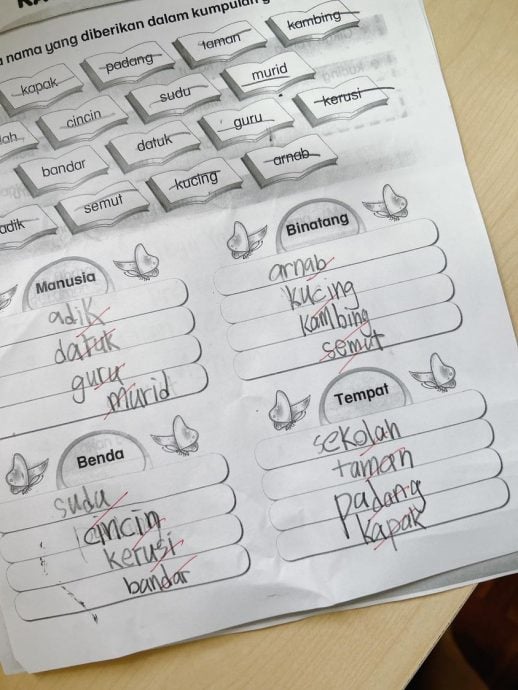 nama yang diberikan dalam kumpulan
kapak
padang
taman
kambing
cincin
sudu
murid
bandar
datuk
guru
kerusi
adik
semut
kucing
arnab
Manusia
adik
datuk
guru
murid
Binatang
arnab
kucing
kambing
semut
Benda
sudu
cincin
kerusi
bandar
Tempat
sekolah
taman
padang
kapak